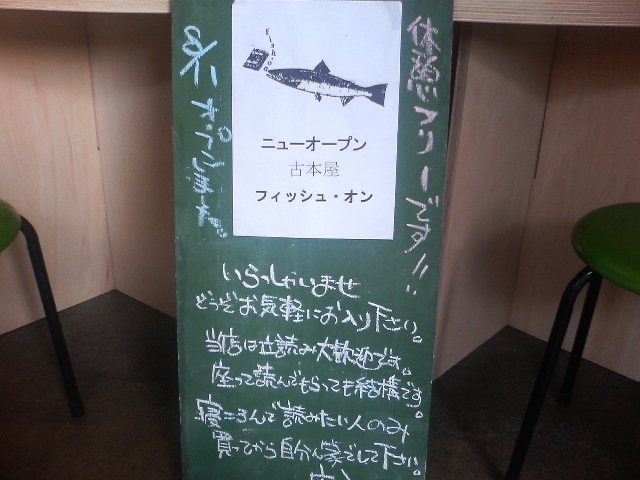 休憩フリーです!!
8/1オープンします。
Fish on
ニューオープン
古本屋
フィッシュ・オン
いらっしゃいませ
どうぞお気軽にお入り下さい。
当店は立読み大歓迎です。
座って読んでもらっても結構です。
寝ころんで読みたい人のみ
買ってから自分ん家でして下さい。